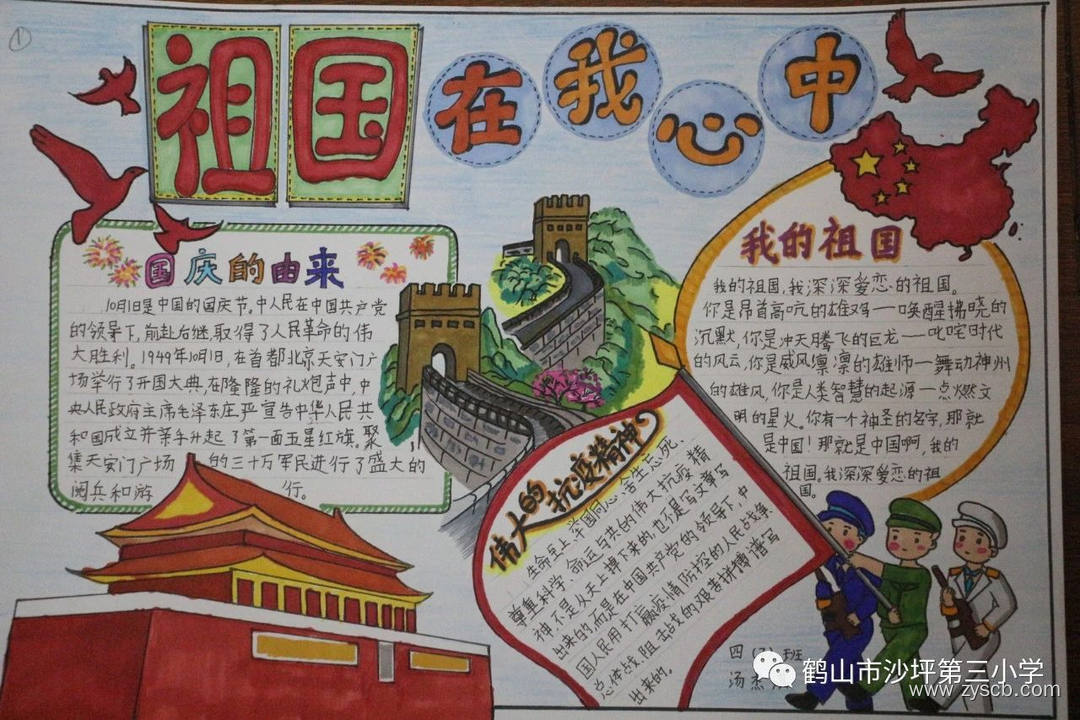 ①
祖国在我心中
国庆的由来
10月1日是中国的国庆节。中人民在中国共产党
的领导下,前赴后继,取得了人民革命的伟
大胜利。1949年10月1日,在首都北京天安门广
场举行了开国大典,在隆隆的礼炮声中,中
央人民政府主席毛泽东庄严宣告中华人民共
和国成立并亲手升起了第一面五星红旗。聚
集天安门广场的三十万军民进行了盛大的
阅兵和游行。
我的祖国
我的祖国,我深深爱恋的祖国。
你是昂首高吭的雄鸡——唤醒拂晓的
沉默,你是冲天腾飞的巨龙——叱咤时代
的风云,你是威风凛凛的雄师—舞动神州
的雄风,你是人类智慧的起源—点燃文
明的星火。你有一个神圣的名字,那就
是中国!那就是中国啊,我的
祖国。我深深爱恋的祖
国。
伟大的抗疫精神
生命至上,举国同心,舍生忘死,
尊重科学,命运与共的伟大抗疫精
神,不是从天上掉下来的,也不是写文章写
出来的,而是在中国共产党的领导下,中
国人民用打赢疫情防控的人民战争
总体战、阻击战的艰苦拼搏谱写
出来的。
四(3)班
汤杰
鹤山市沙坪第三小学
www.zyscb.com